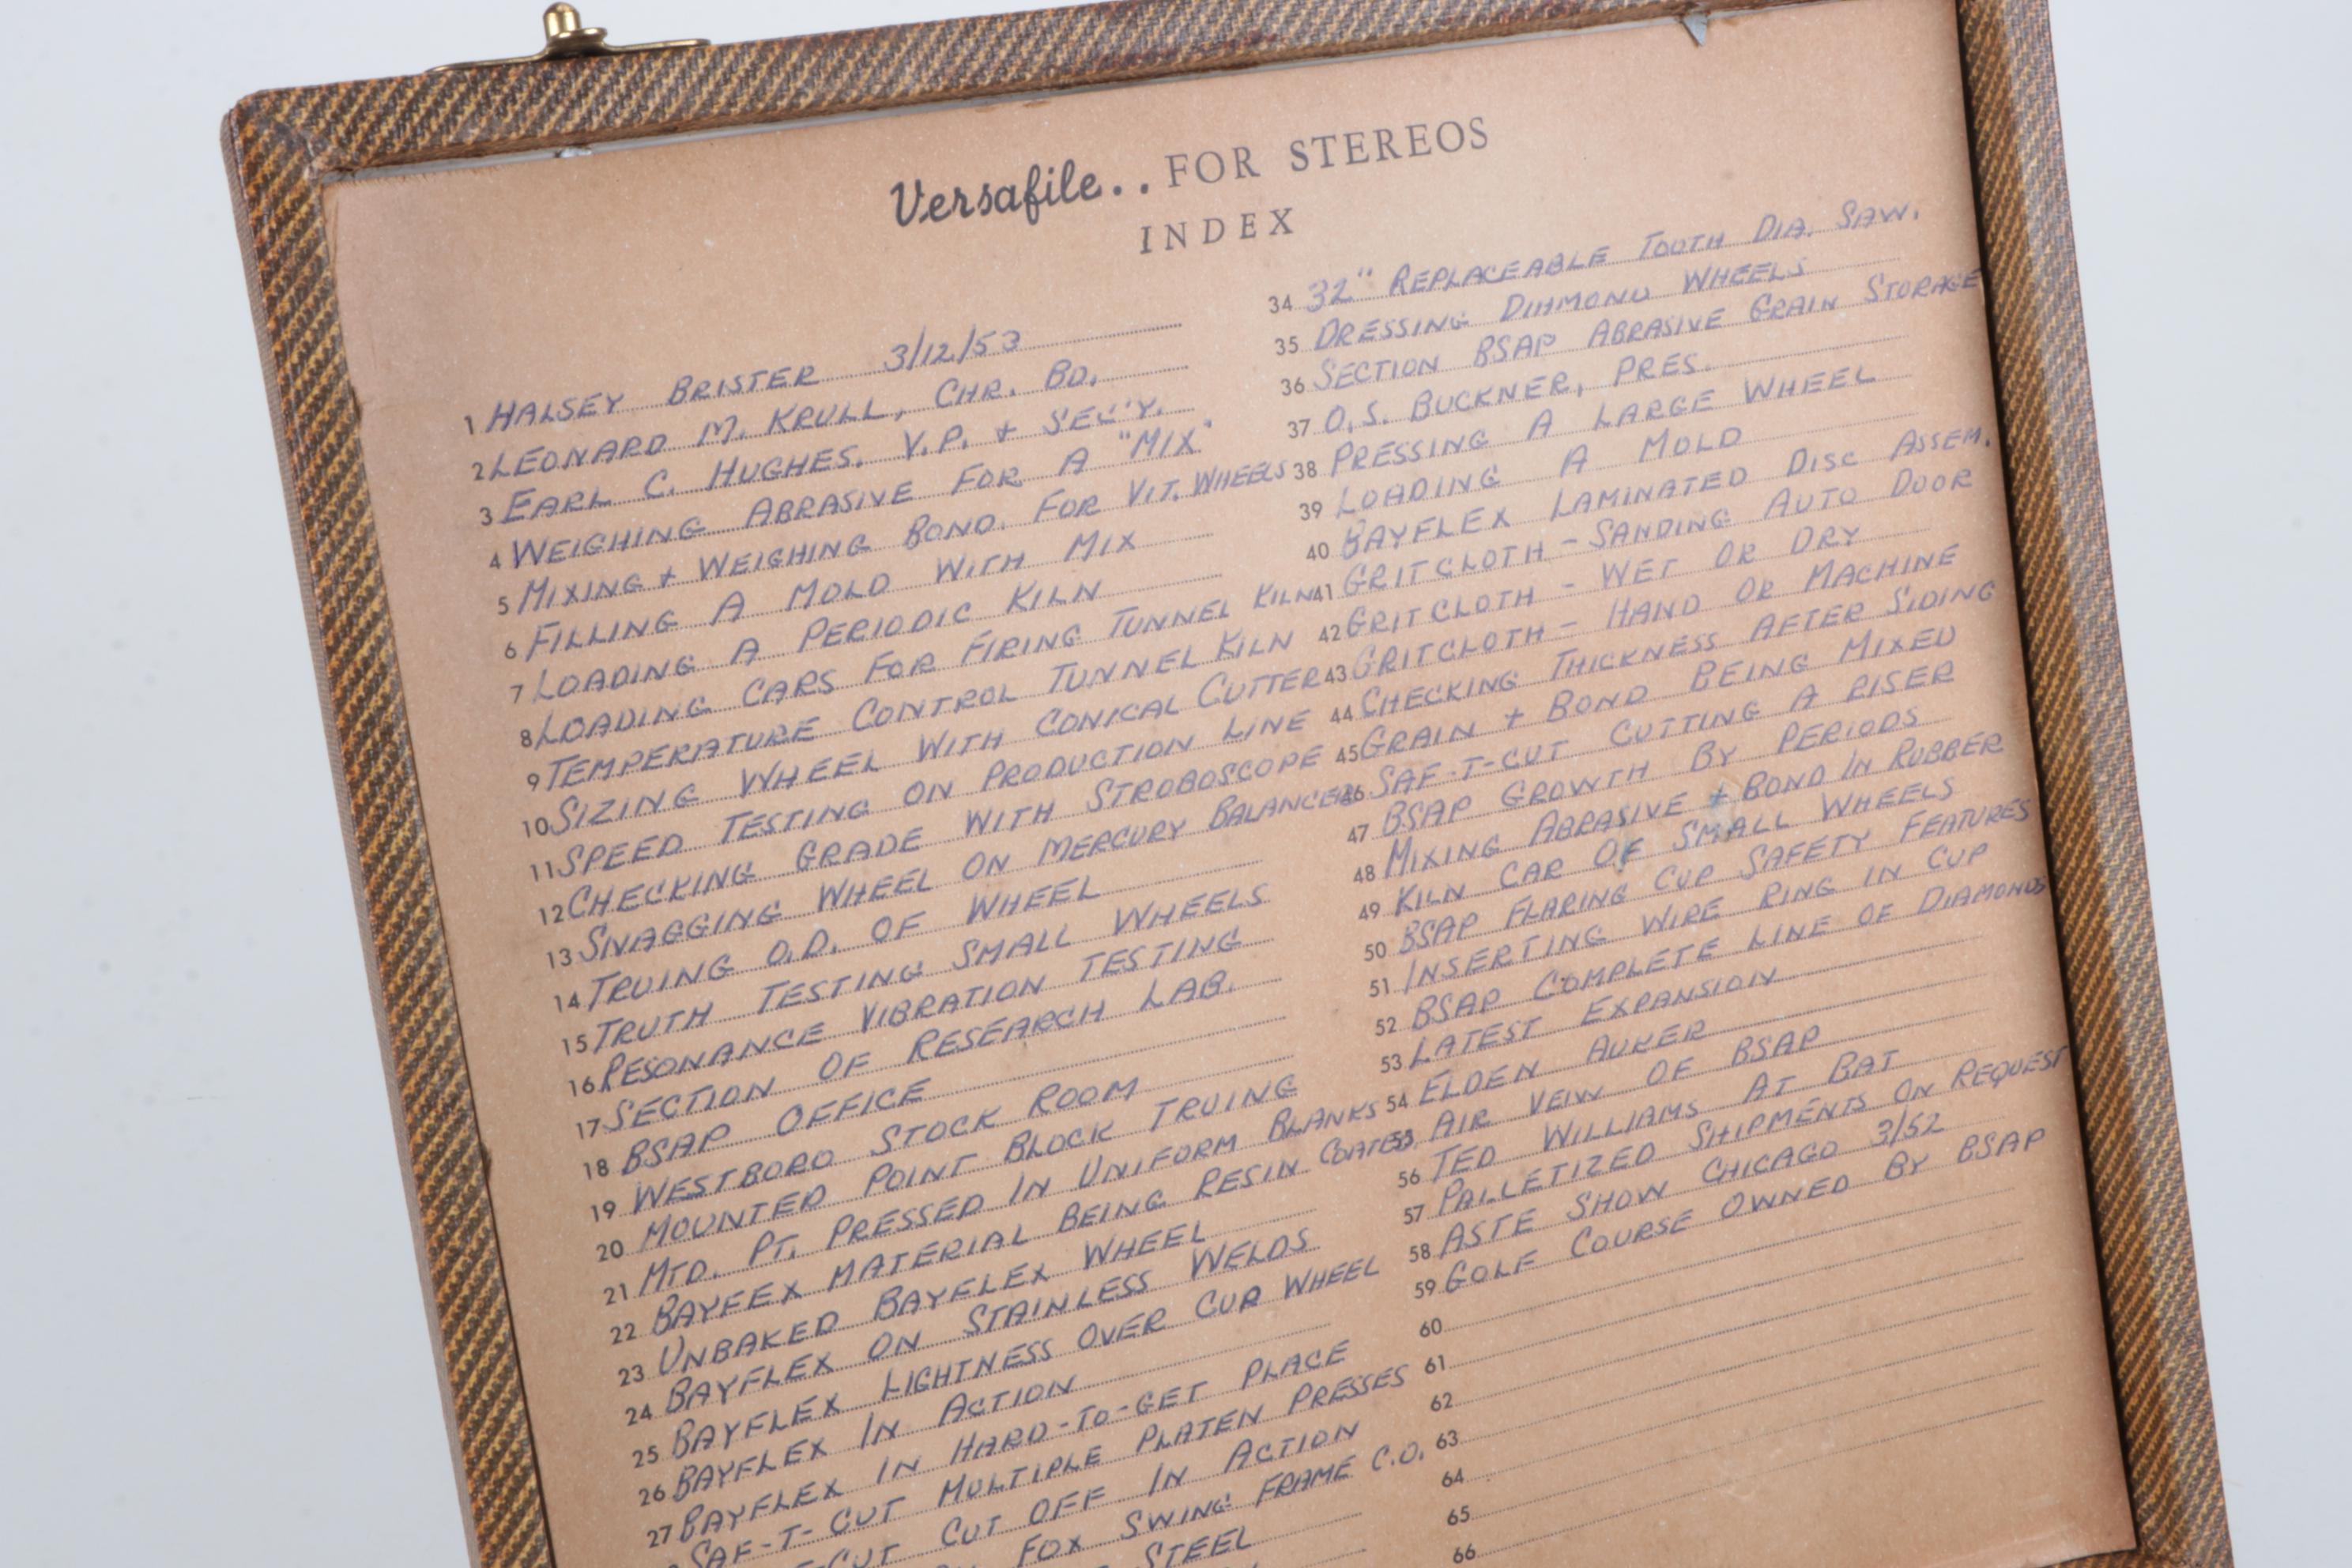 Versafile.. FOR STEREOS
INDEX
1 HALSEY BRISTER 3/12/53
2 LEONARD M. KRULL, CHR. BD.
3 EARL C. HUGHES. V.P. + SEC'Y.
4 WEIGHING ABRASIVE FOR A "MIX"
5 MIXING + WEIGHING BOND. FOR VIT. WHEELS
6 FILLING A MOLD WITH MIX
7 LOADING A PERIODIC KILN
8 LOADING CARS FOR FIRING TUNNEL KILN
9 TEMPERATURE CONTROL TUNNEL KILN
10 SIZING WHEEL WITH CONICAL CUTTER
11 SPEED TESTING ON PRODUCTION LINE
12 CHECKING GRADE WITH STROBOSCOPE
13 SNAGGING WHEEL ON MERCURY BALANCER
14 TRUING O.D. OF WHEEL
15 TRUTH TESTING SMALL WHEELS
16 RESONANCE VIBRATION TESTING
17 SECTION OF RESEARCH LAB.
18 BSAP OFFICE
19 WESTBORO STOCK ROOM
20 MOUNTED POINT BLOCK TRUING
21 MTD. PT. PRESSED IN UNIFORM BLANKS
22 BAYFEX MATERIAL BEING RESIN COATED
23 UNBAKED BAYFLEX WHEEL
24 BAYFLEX ON STAINLESS WELDS
25 BAYFLEX LIGHTNESS OVER CUP WHEEL
26 BAYFLEX IN ACTION
27 BAYFLEX IN HARD-TO-GET PLACE
SAF-T-CUT MULTIPLE PLATEN PRESSES
CUT CUT OFF IN ACTION
FOX SWING FRAME C.O.
STEEL
34 32" REPLACEABLE TOOTH DIA. SAW.
35 DRESSING DIAMOND WHEELS
36 SECTION BSAP ABRASIVE GRAIN STORAGE
37 O.S. BUCKNER, PRES.
38 PRESSING A LARGE WHEEL
39 LOADING A MOLD
40 BAYFLEX LAMINATED DISC ASSEM.
41 GRITCLOTH - SANDING AUTO DOOR
42 GRITCLOTH - WET OR DRY
43 GRITCLOTH - HAND OR MACHINE
44 CHECKING THICKNESS AFTER SIDING
45 GRAIN + BOND BEING MIXED
46 SAF-T-CUT CUTTING A RISER
47 BSAP GROWTH BY PERIODS
48 MIXING ABRASIVE + BOND IN RUBBER
49 KILN CAR OF SMALL WHEELS
50 BSAP FLARING CUP SAFETY FEATURES
51 INSERTING WIRE RING IN CUP
52 BSAP COMPLETE LINE OF DIAMONDS
53 LATEST EXPANSION
54 ELDEN AUKER
55 AIR VEIW OF BSAP
56 TED WILLIAMS AT BAT
57 PALLETIZED SHIPMENTS ON REQUEST
58 ASTE SHOW CHICAGO 3/52
59 GOLF COURSE OWNED BY BSAP
60
61
62
63
64
65
66